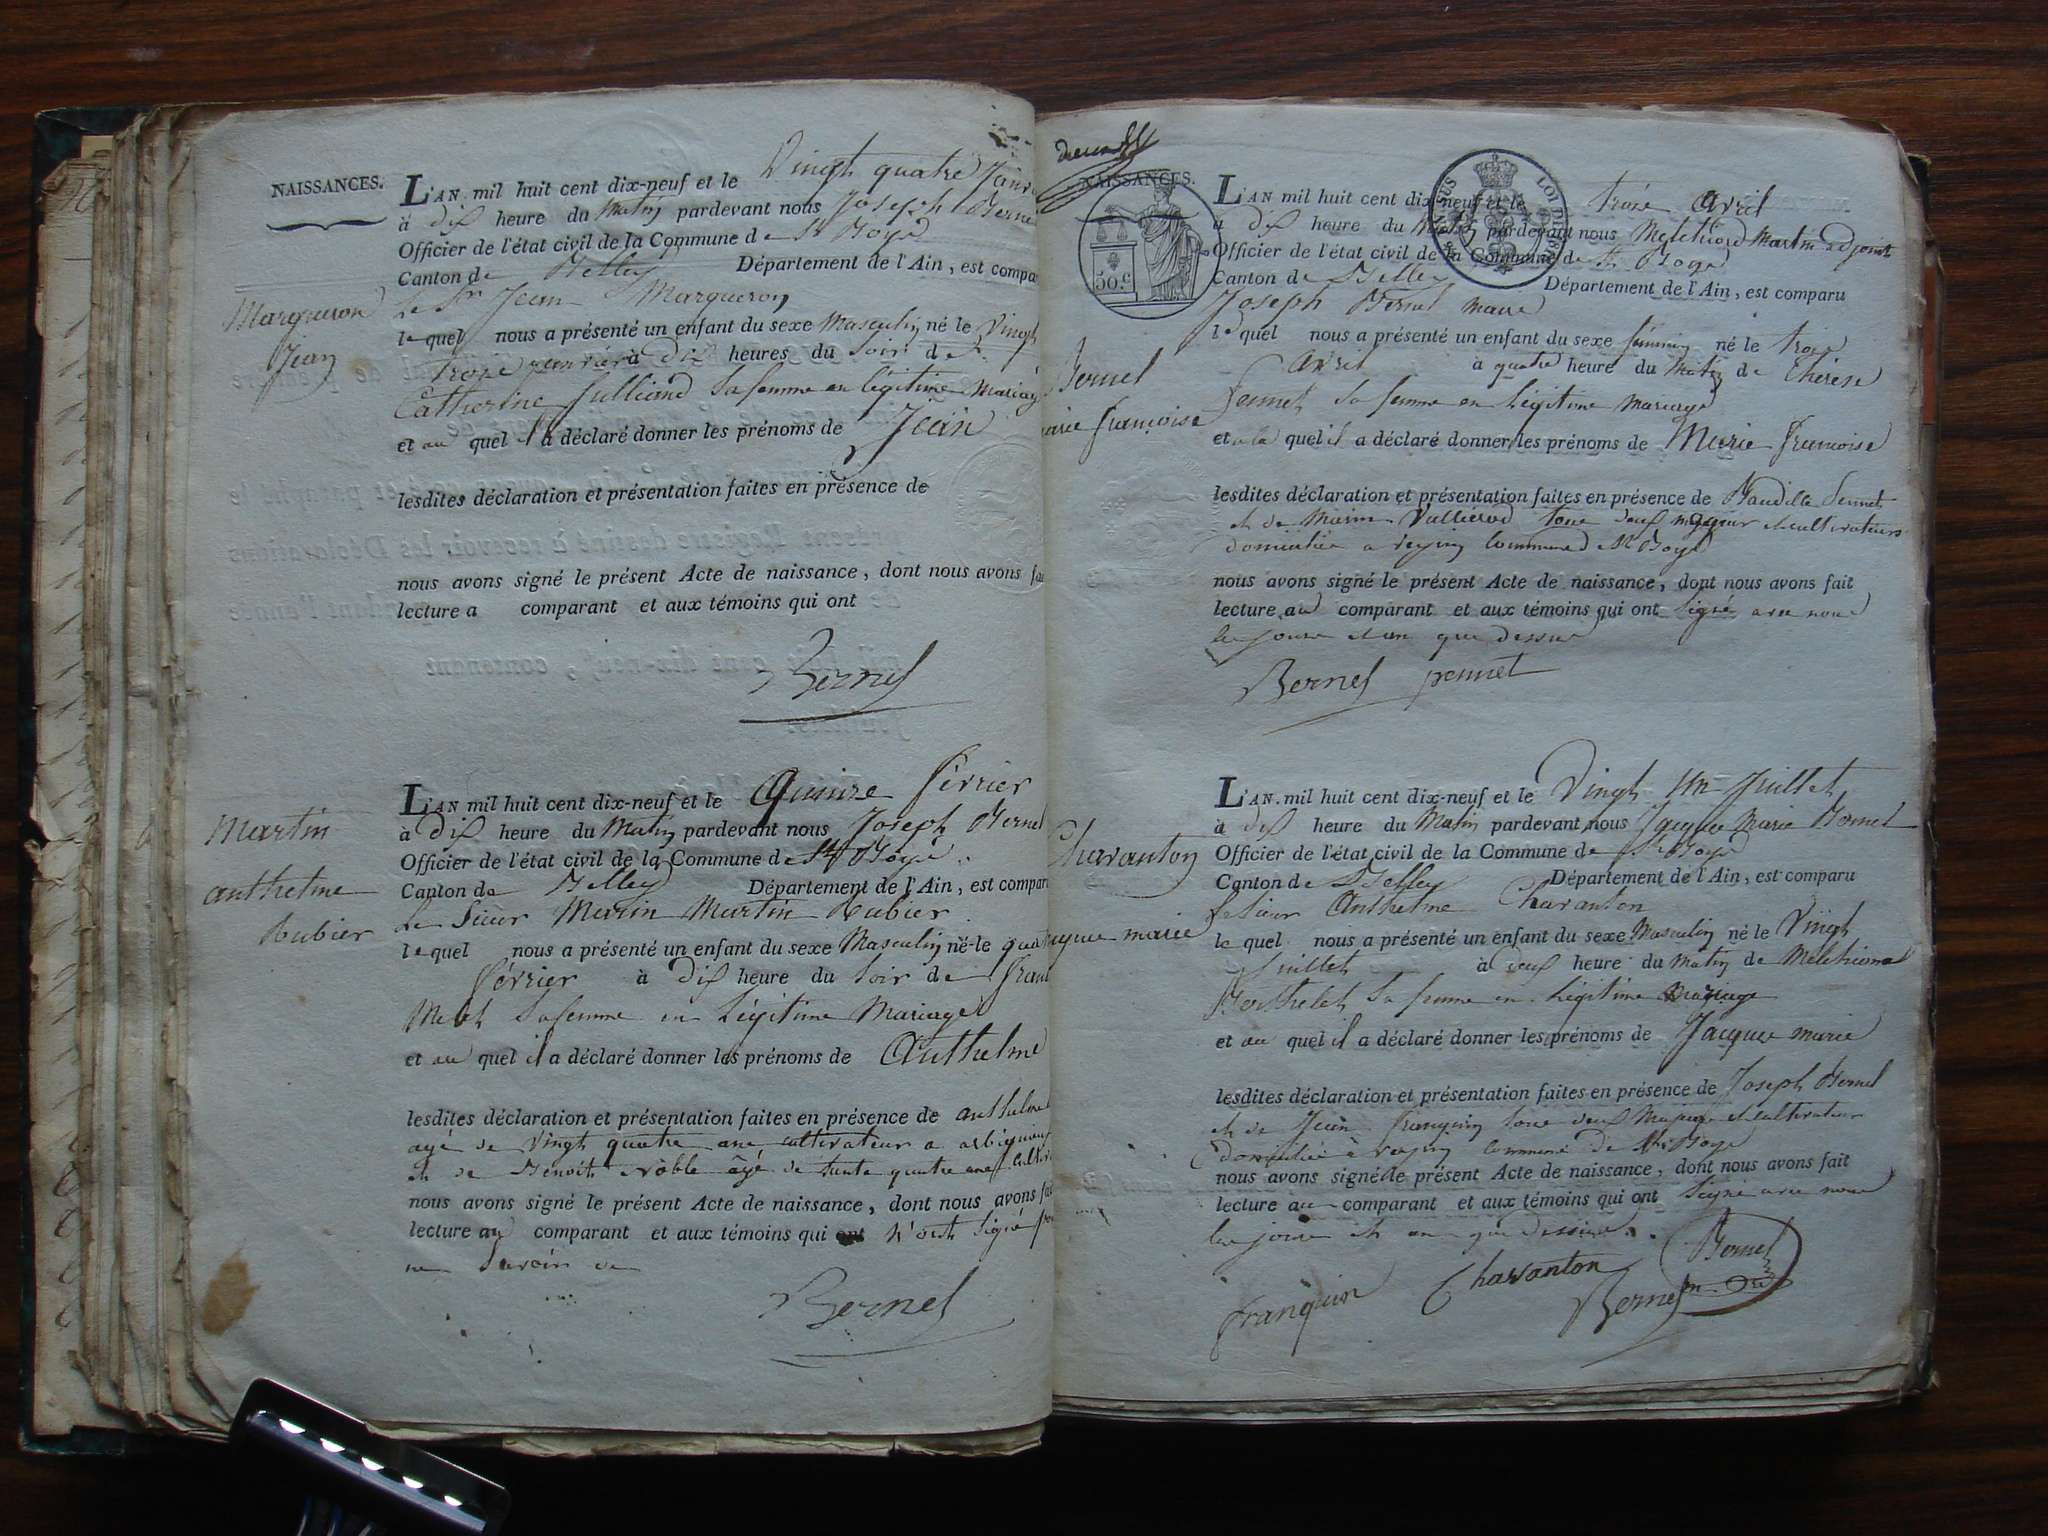 NAISSANCES.
L'AN mil huit cent dix-neuf et le Vingt quatre Janv
à dix heure du Matin pardevant nous Joseph Berne
Officier de l'état civil de la Commune de St Boys
Canton de Belley Département de l'Ain, est compa
Le Sr Jean Margueron
Margueron
Jean
lequel nous a présenté un enfant du sexe Masculin né le Vingt
Trois janvier à dix heures du Soir de
Catherine Julliand Sa femme en légitime Mariage
et au quel il a déclaré donner les prénoms de Jean
lesdites déclaration et présentation faites en présence de
nous avons signé le présent Acte de naissance, dont nous avons fa
lecture a comparant et aux témoins qui ont
Bernel
L'AN mil huit cent dix-neuf et le Quinze février
à Dix heure du Matin pardevant nous Joseph Bernel
Officier de l'état civil de la Commune de St Boys
Canton de Belley Département de l'Ain, est compar
Le Sieur Marin Martin Rubier
Martin
anthelme
Rubier
lequel nous a présenté un enfant du sexe Masculin né le qua
février à dix heure du Soir de
Sa femme en Légitime Mariage
et au quel il a déclaré donner les prénoms de Anthelme
lesdites déclaration et présentation faites en présence de anthelme
agé de Vingt quatre ans cultivateur a
et de Benoit Noble âgé de trente quatre ans
nous avons signé le présent Acte de naissance, dont nous avons fai
lecture au comparant et aux témoins qui ont n'ont signé
ne Savoir
Bernel
NAISSANCES.
50.c
LOI DE 181
L'AN mil huit cent dix-neuf et le troise avril
à dix heure du Matin pardevant nous Melchiord Martin adjoint
Officier de l'état civil de la Commune de St Boys
Canton de Belley Département de l'Ain, est comparu
Joseph Bernel maire
lequel nous a présenté un enfant du sexe féminin né le trois
avril à quatre heure du Matin de Thérèse
pennet Sa femme en Légitime mariage
Bernel
arie françoise
et a la quel il a déclaré donner les prénoms de Marie françoise
lesdites déclaration et présentation faites en présence de pennet
et de Marin Vullierod tous deux majeur et cultivateurs
domiciliés a commune de St Boys
nous avons signé le présent Acte de naissance, dont nous avons fait
lecture au comparant et aux témoins qui ont signé avec nous
les jours et an que dessus
Bernel pennet
L'AN mil huit cent dix-neuf et le Vingt un Juillet
à dix heure du Matin pardevant nous Jacque Marie Bornet
Officier de l'état civil de la Commune de St Boys
Canton de Belley Département de l'Ain, est comparu
Le Sieur Anthelme Charanton
Charanton
jacque marie
lequel nous a présenté un enfant du sexe Masculin né le Vingt
Juillet à deux heure du Matin de Melchionne
Berthelet Sa femme en légitime mariage
et au quel il a déclaré donner les prénoms de Jacque marie
lesdites déclaration et présentation faites en présence de Joseph Bernel
et de Jean franquin tous deux Majeur et cultivateur
domiciliés à commune de St Boys
nous avons signé le présent Acte de naissance, dont nous avons fait
lecture au comparant et aux témoins qui ont Signé avec nous
les jour et an que dessus.
franquin Charanton Bernel